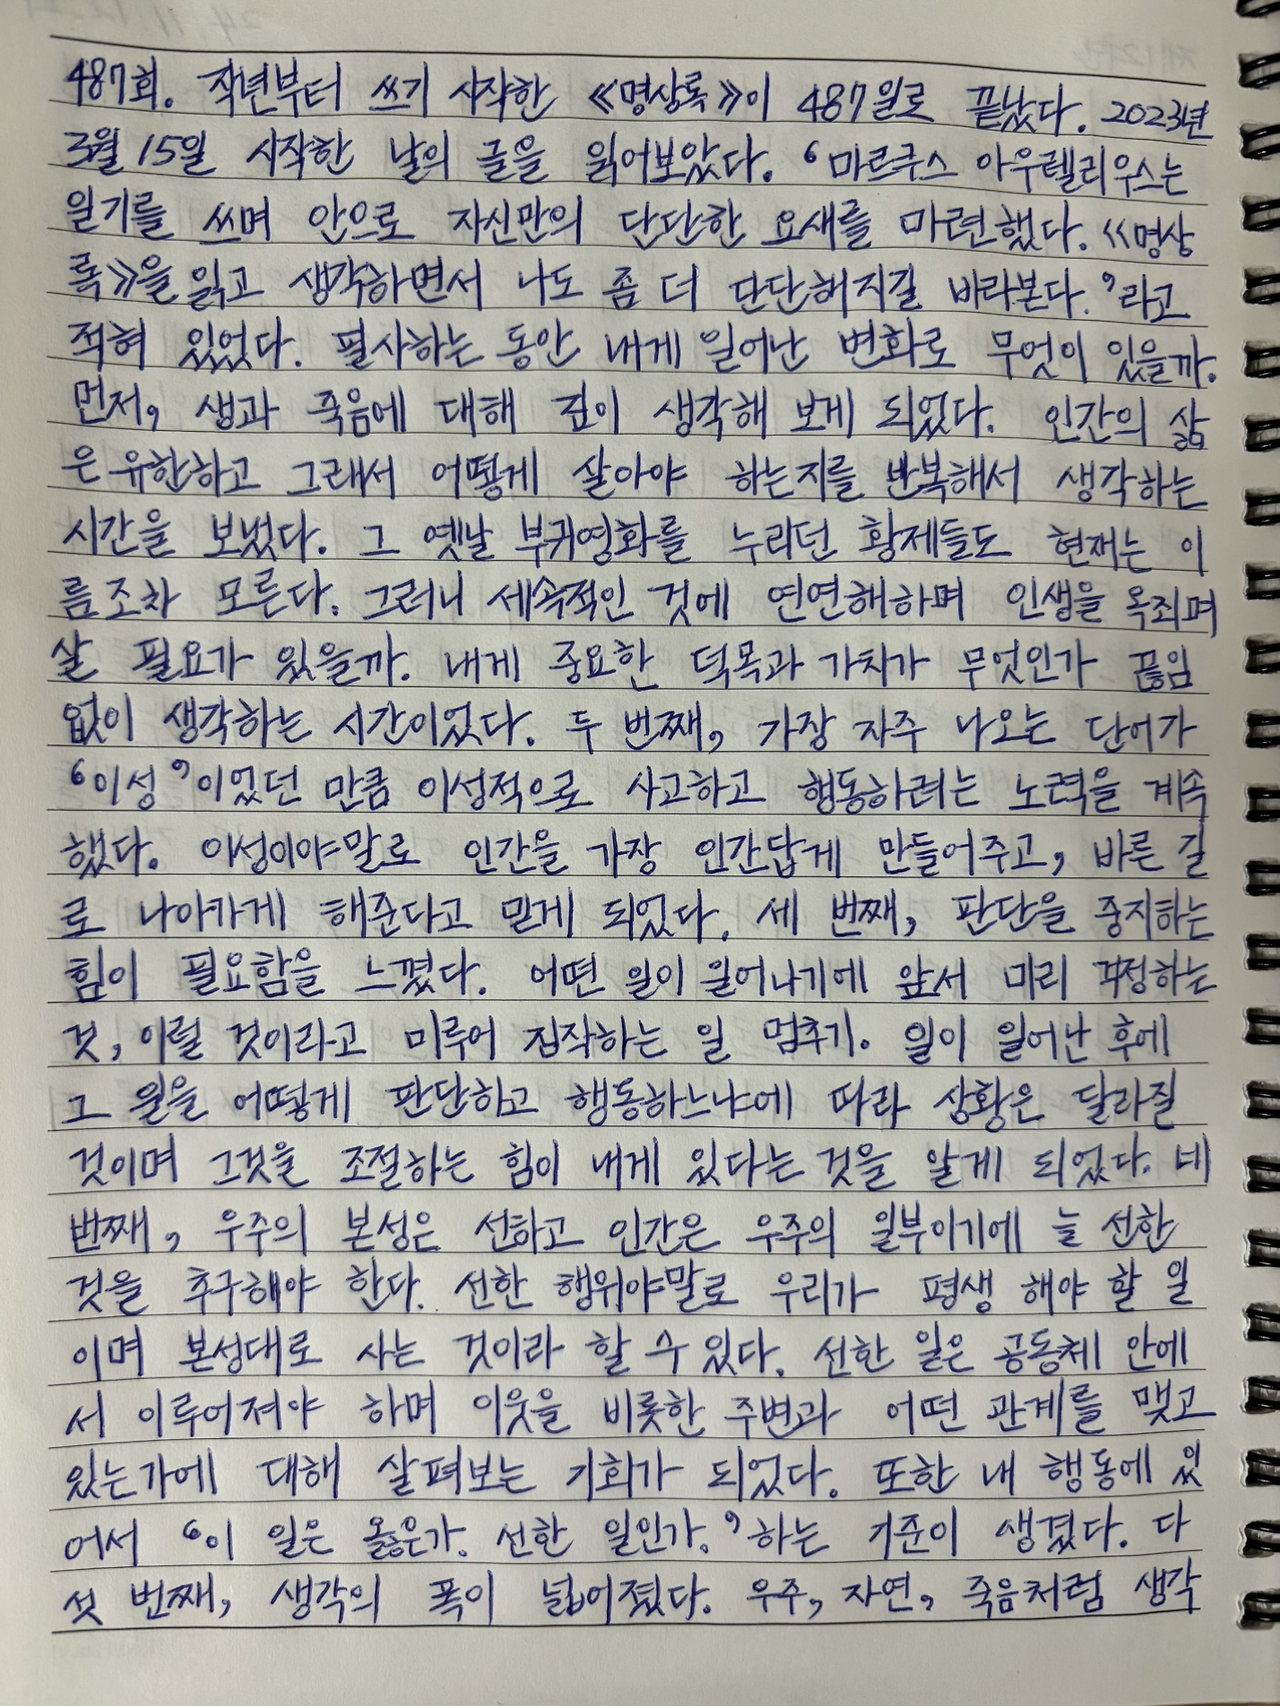 487회. 작년부터 쓰기 시작한 《명상록》이 487일로 끝났다. 2023년
3월 15일 시작한 날의 글을 읽어보았다. ‘마르쿠스 아우렐리우스는
일기를 쓰며 안으로 자신만의 단단한 요새를 마련했다. 《명상
록》을 읽고 생각하면서 나도 좀 더 단단해지길 바라본다.’라고
적혀 있었다. 필사하는 동안 내게 일어난 변화로 무엇이 있을까.
먼저, 생과 죽음에 대해 깊이 생각해 보게 되었다. 인간의 삶
은 유한하고 그래서 어떻게 살아야 하는지를 반복해서 생각하는
시간을 보냈다. 그 옛날 부귀영화를 누리던 황제들도 현재는 이
름조차 모른다. 그러니 세속적인 것에 연연해하며 인생을 옥죄며
살 필요가 있을까. 내게 중요한 덕목과 가치가 무엇인가 끊임
없이 생각하는 시간이었다. 두 번째, 가장 자주 나오는 단어가
‘이성’이었던 만큼 이성적으로 사고하고 행동하려는 노력을 계속
했다. 이성이야말로 인간을 가장 인간답게 만들어주고, 바른 길
로 나아가게 해준다고 믿게 되었다. 세 번째, 판단을 중지하는
힘이 필요함을 느꼈다. 어떤 일이 일어나기에 앞서 미리 걱정하는
것, 이럴 것이라고 미루어 짐작하는 일 멈추기. 일이 일어난 후에
그 일을 어떻게 판단하고 행동하느냐에 따라 상황은 달라질
것이며 그것을 조절하는 힘이 내게 있다는 것을 알게 되었다. 네
번째, 우주의 본성은 선하고 인간은 우주의 일부이기에 늘 선한
것을 추구해야 한다. 선한 행위야말로 우리가 평생 해야 할 일
이며 본성대로 사는 것이라 할 수 있다. 선한 일은 공동체 안에
서 이루어져야 하며 이웃을 비롯한 주변과 어떤 관계를 맺고
있는가에 대해 살펴보는 기회가 되었다. 또한 내 행동에 있
어서 ‘이 일은 옳은가. 선한 일인가.’ 하는 기준이 생겼다. 다
섯 번째, 생각의 폭이 넓어졌다. 우주, 자연, 죽음처럼 생각